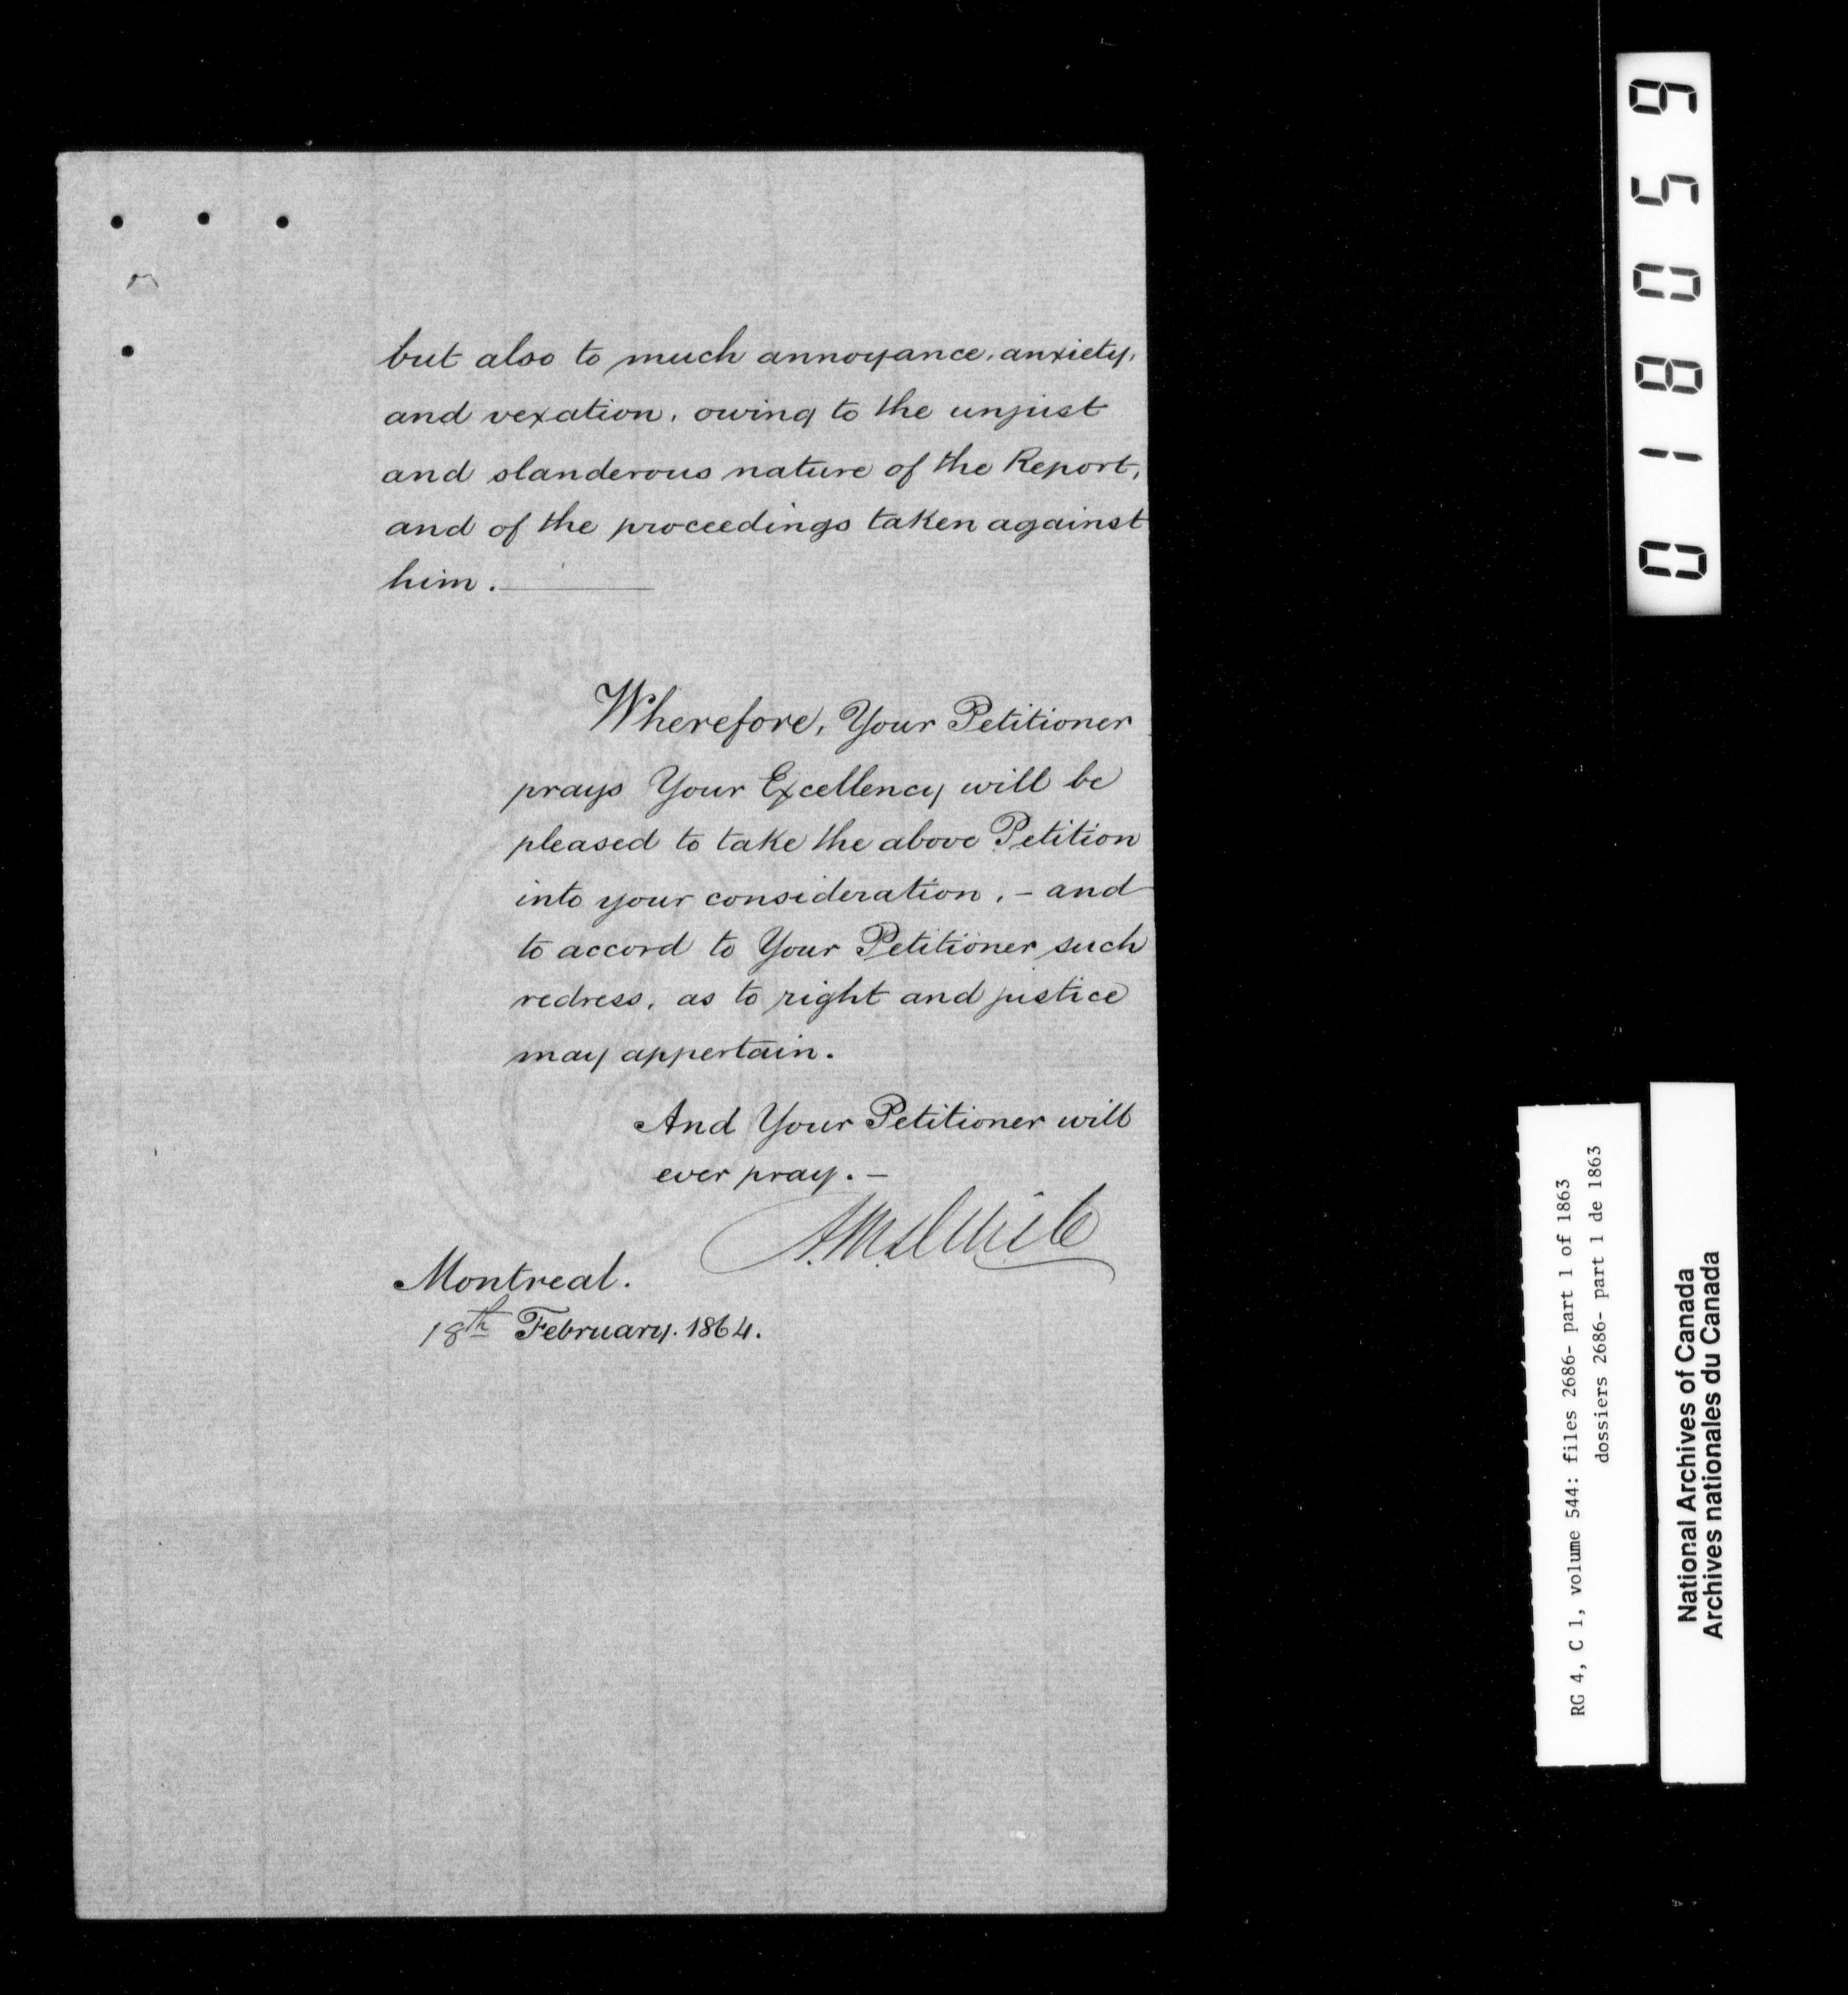 but also to much annoyance, anxiety,
and vexation, owing to the unjust
and slanderous nature of the Report,
and of the proceedings taken against
him.
Wherefore, Your Petitioner
prays Your Excellency will be
pleased to take the above Petition
into your consideration, - and
to accord to Your Petitioner such
redress, as to right and justice
may appertain.
And Your Petitioner will
ever pray. -
Montreal.
18th February. 1864.
018059
RG 4, C 1, volume 544: files 2686- part 1 of 1863
dossiers 2686- part 1 de 1863
National Archives of Canada
Archives nationales du Canada